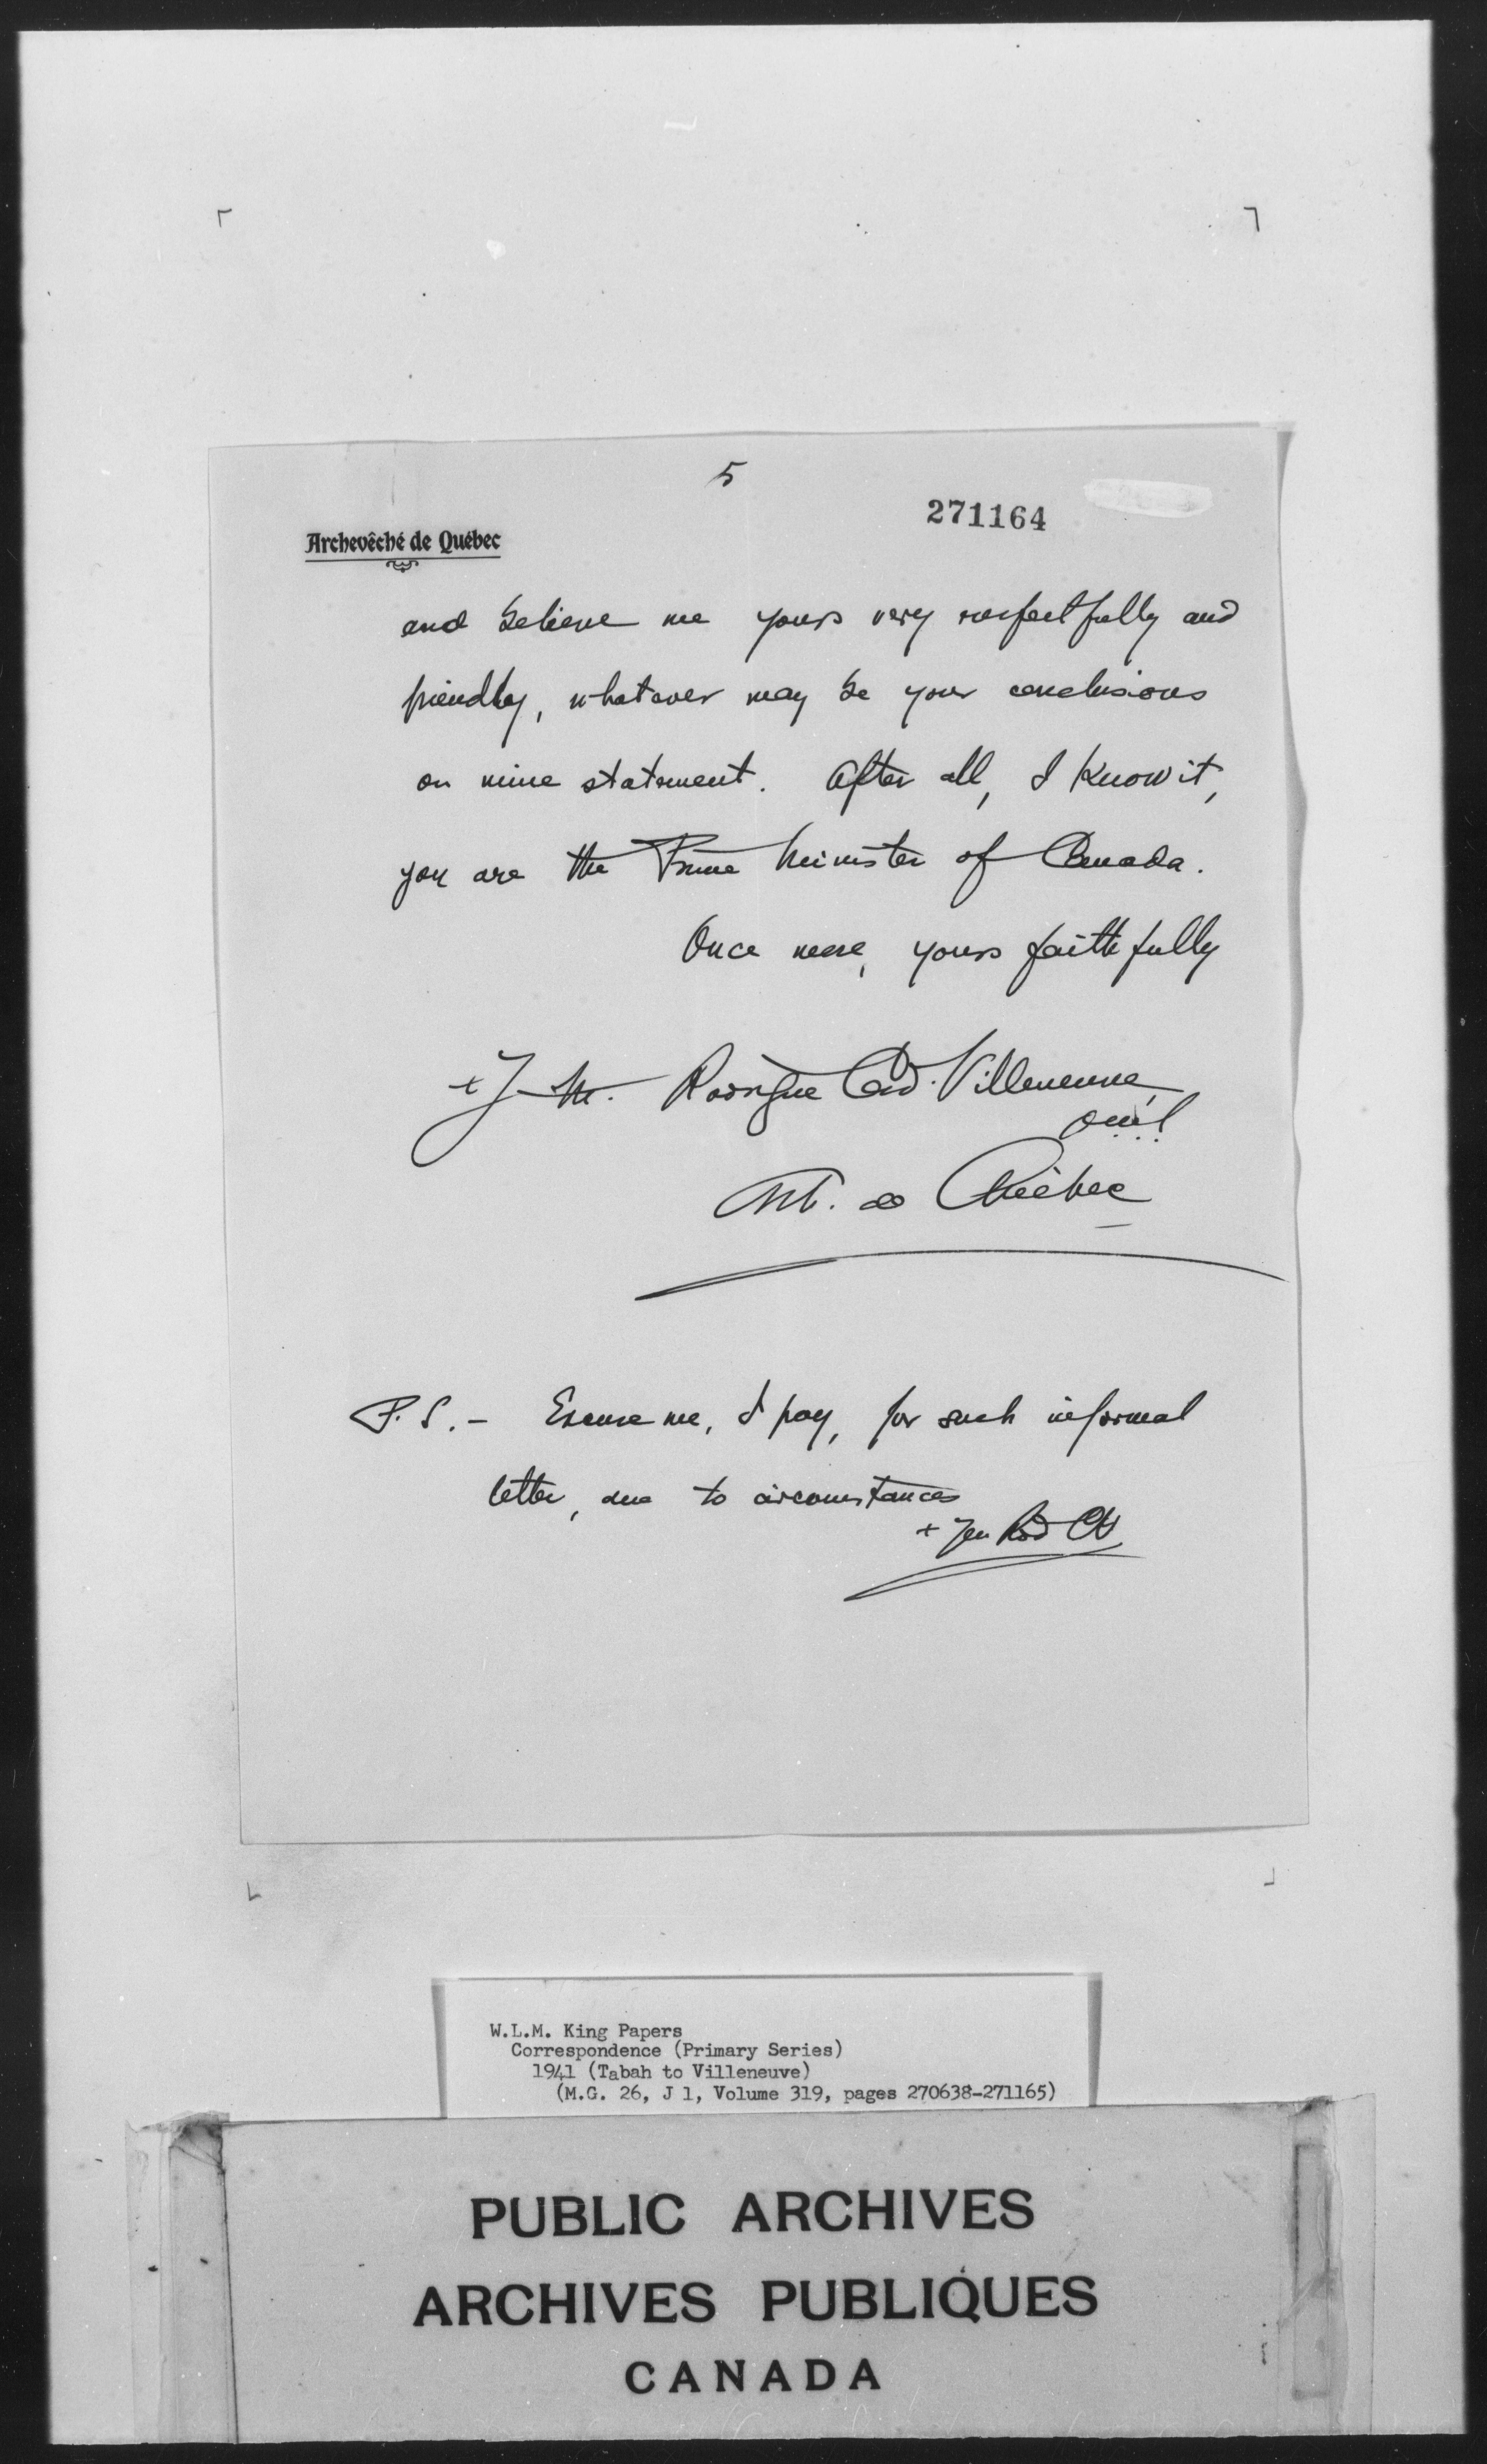 5
271164
Archevêché de Québec
and believe me yours very respectfully and
friendly, whatever may be your conclusions
on mine statement. After all, I know it,
you are the Prime Minister of Canada.
Once more, yours faithfully
+ J.-M. Rodrigue Card. Villeneuve,
o.m.i.
Arch. de Québec
P.S. - Excuse me, I pray, for such informal
letter, due to circumstances
W.L.M. King Papers
Correspondence (Primary Series)
1941 (Tabah to Villeneuve)
(M.G. 26, J 1, Volume 319, pages 270638-271165)
PUBLIC ARCHIVES
ARCHIVES PUBLIQUES
CANADA